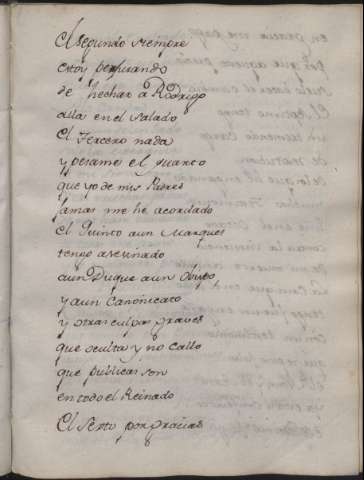 El segundo siempre
estoy perjurando
de hechar a Rodrigo
alla en el Salado
El Tercero nada
y pesame el quarto
que yo de mis Padres
jamas me he acordado
El Quinto aun Marques
tengo asesinado
aun Duque aun Obispo
y aun Canonicato
y otras culpas graves
que oculta y no callo
que publicas son
en todo el Reinado
El Sexto por gracias